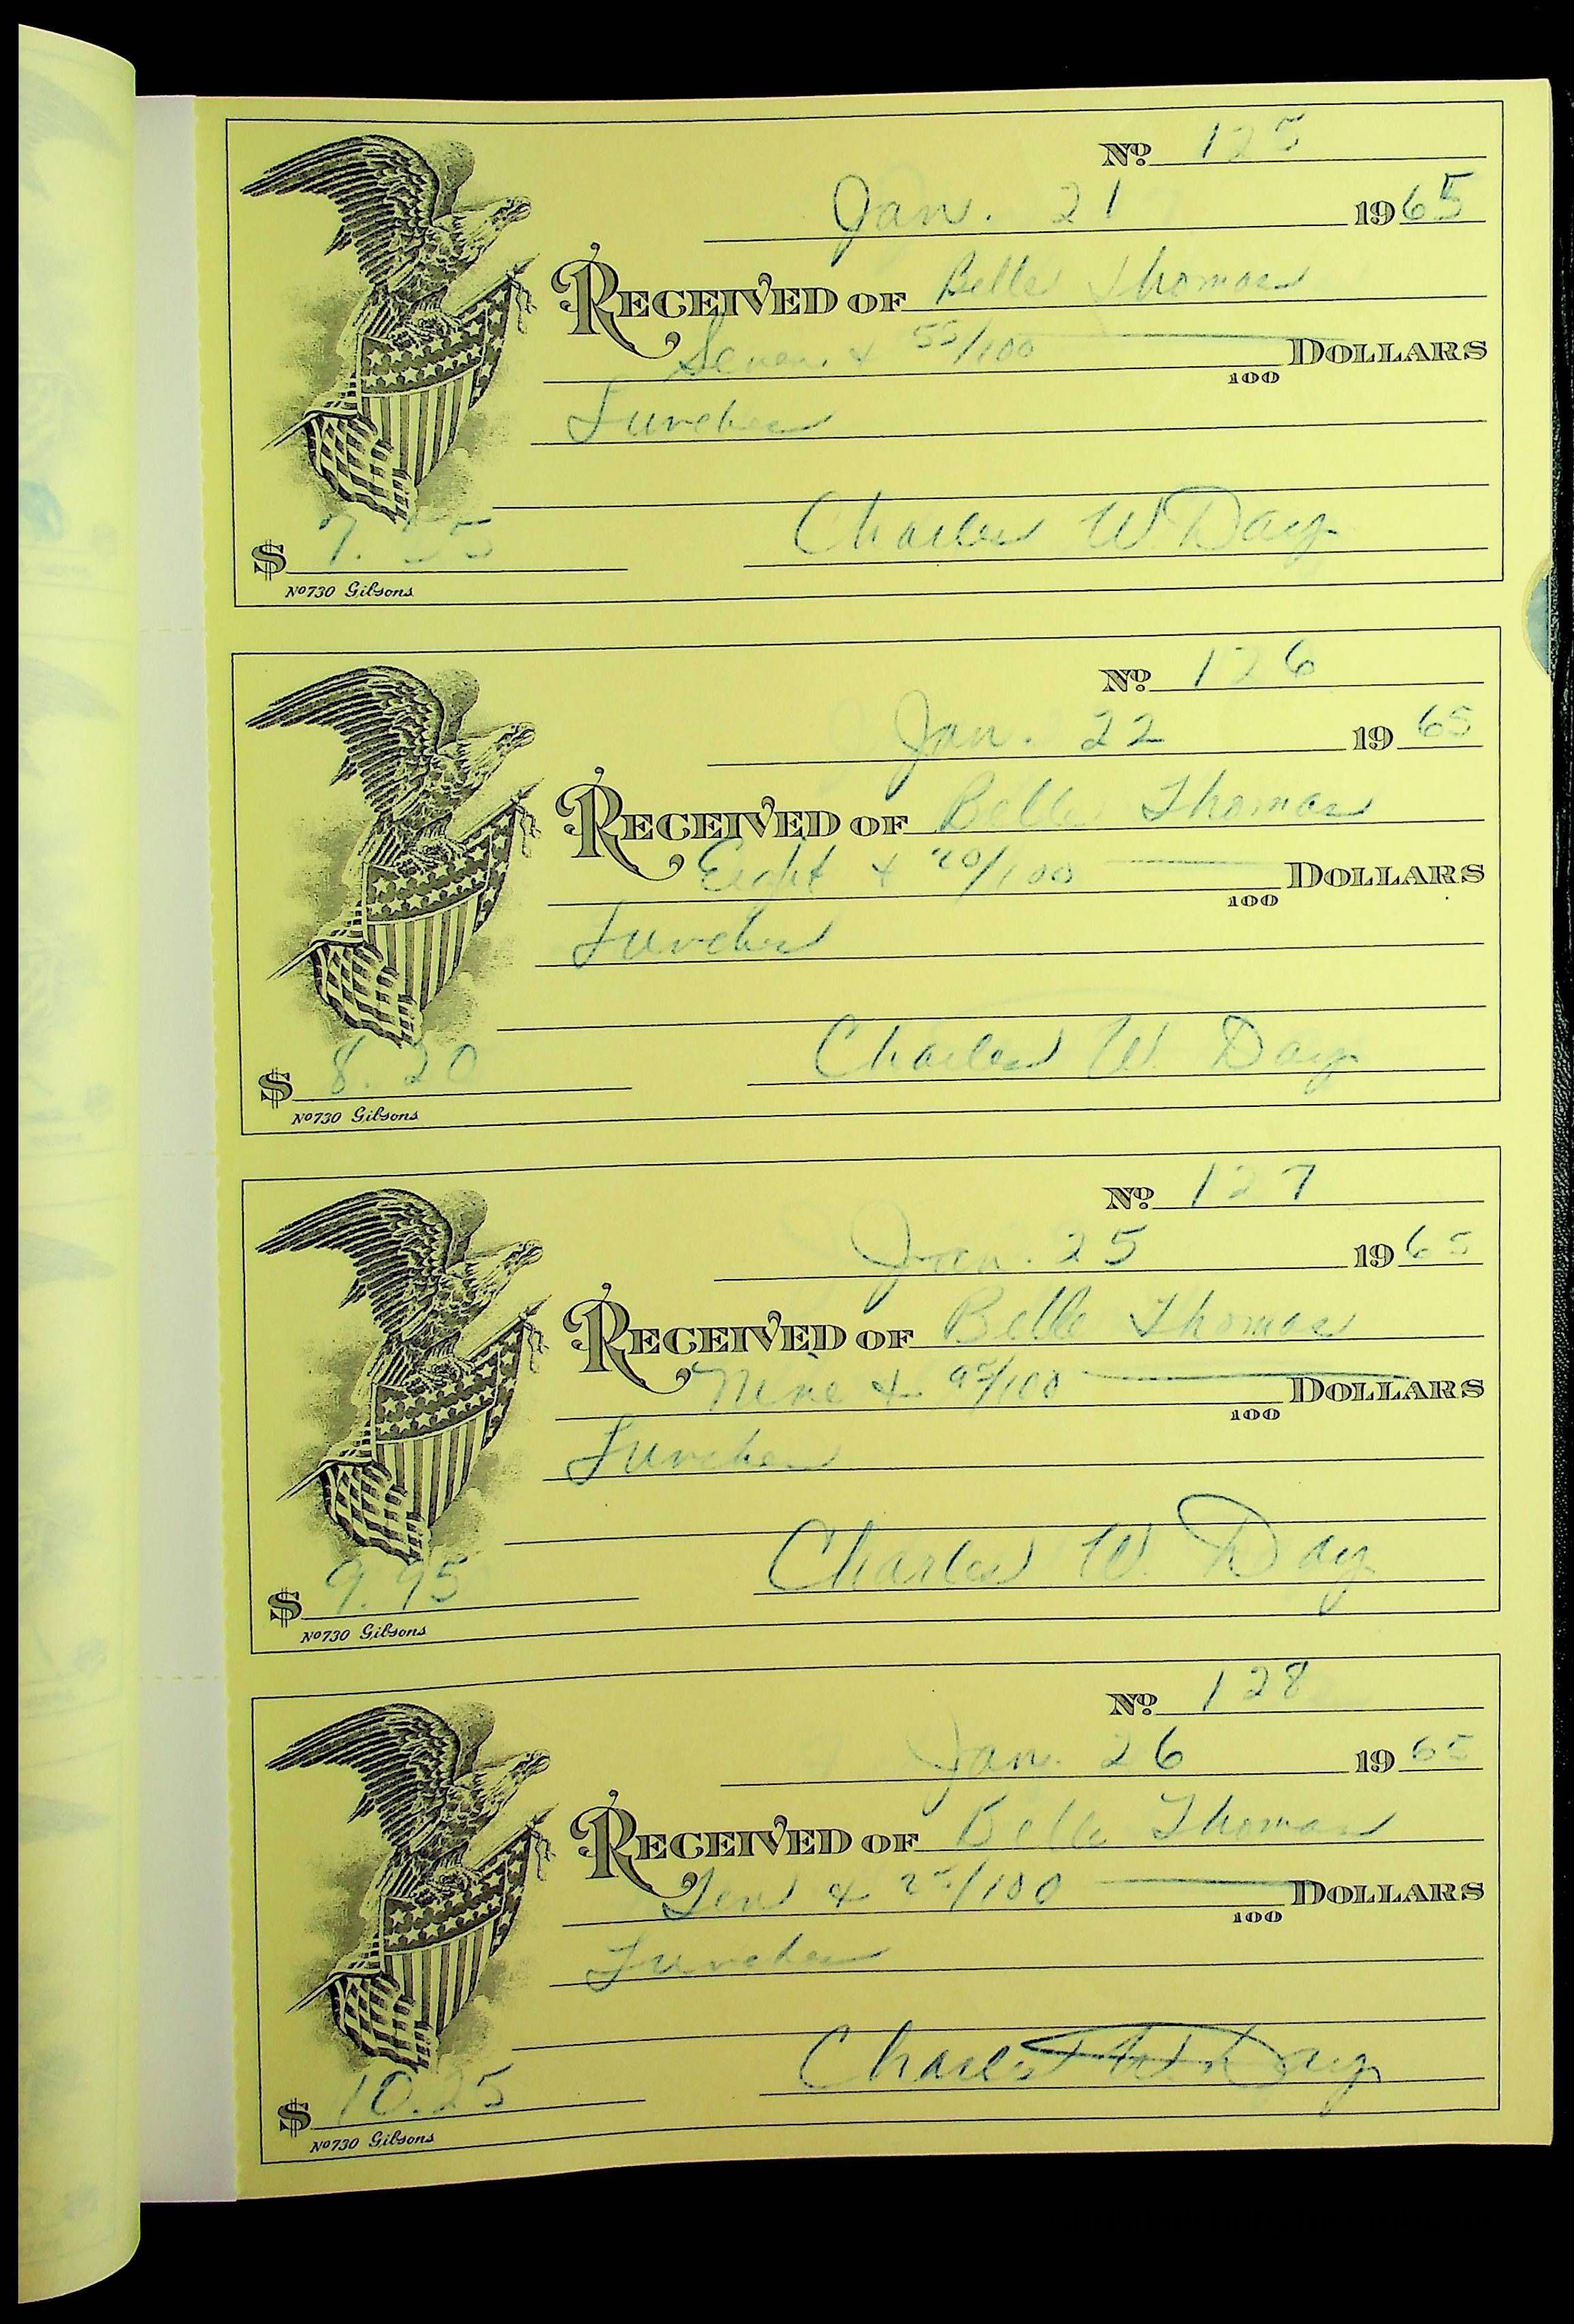 No. 125
Jan. 21 1965
RECEIVED OF Belle Thomas
Seven & 55/100 DOLLARS
100
Lunches
Charles W. Day
$ 7.55
No 730 Gibsons
No. 126
Jan. 22 1965
RECEIVED OF Belle Thomas
Eight & 20/100 DOLLARS
100
Lunches
Charles W. Day
$ 8.20
No 730 Gibsons
No. 127
Jan. 25 1965
RECEIVED OF Belle Thomas
Nine & 95/100 DOLLARS
100
Lunches
Charles W. Day
$ 9.95
No 730 Gibsons
No. 128
Jan. 26 1965
RECEIVED OF Belle Thomas
Ten & 25/100 DOLLARS
100
Lunches
Charles W. Day
$ 10.25
No 730 Gibsons